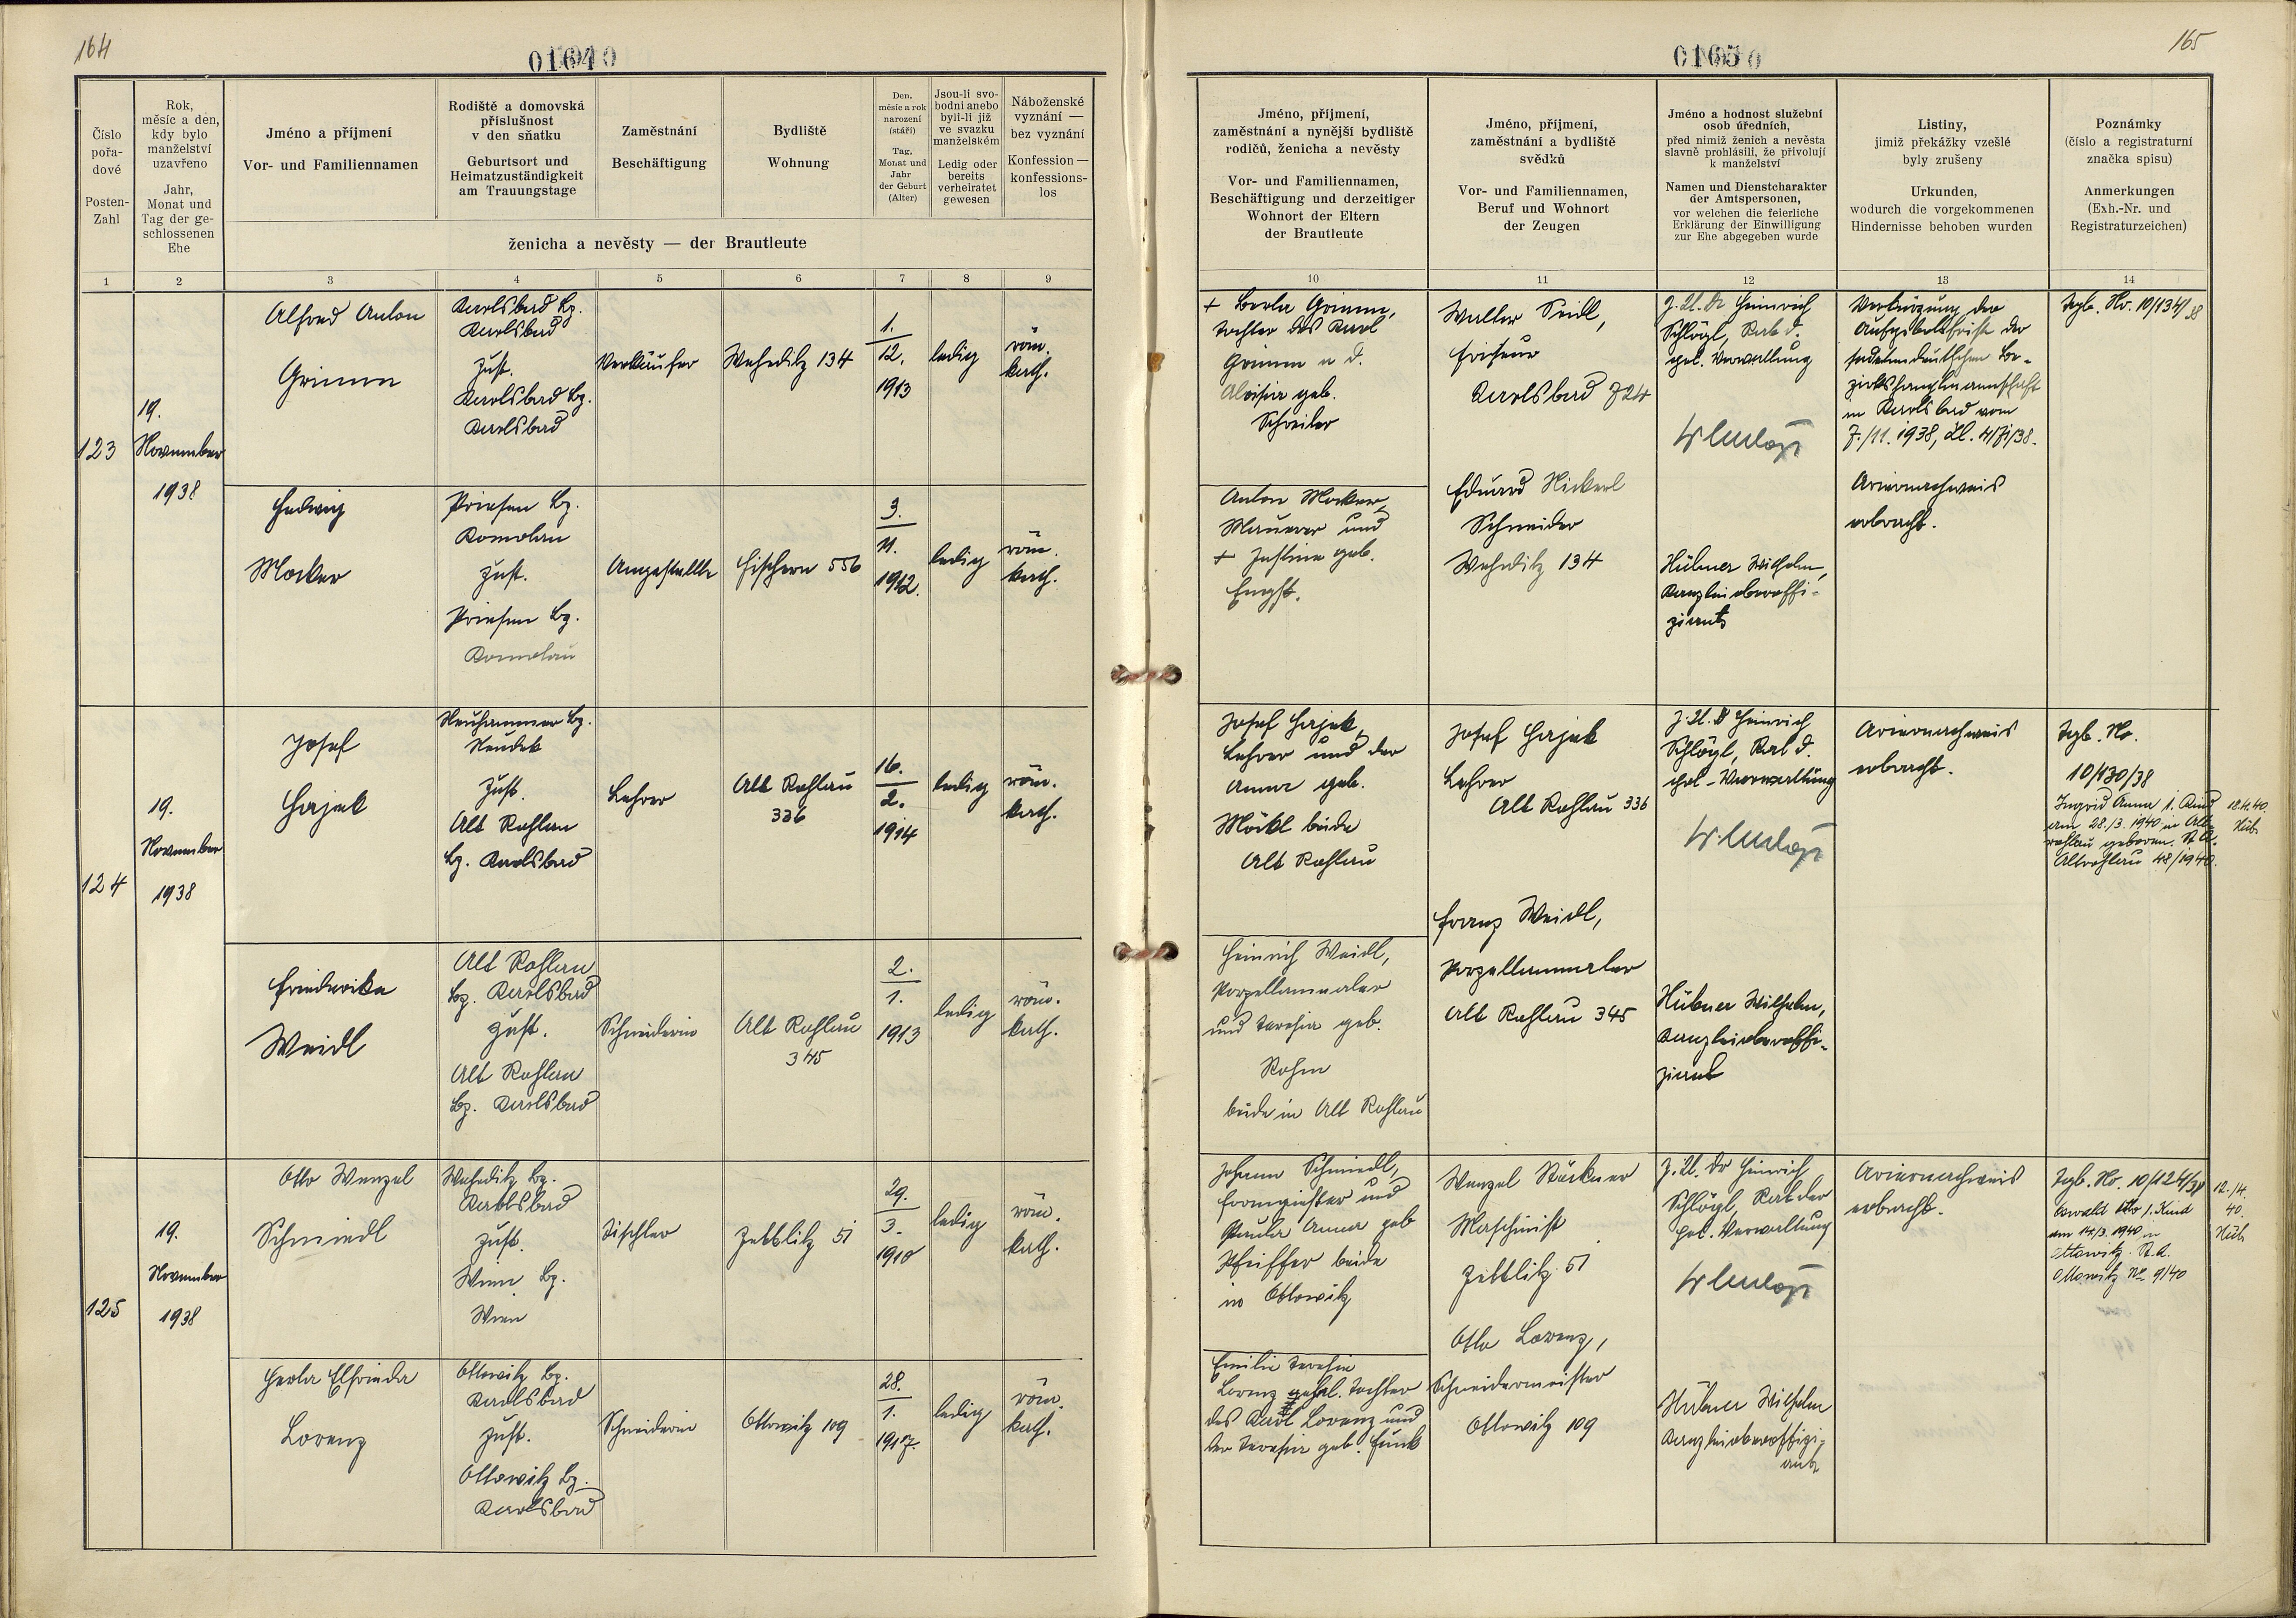 164
01640
Číslo
pořa-
dové
Posten-
Zahl
Rok,
měsíc a den,
kdy bylo
manželství
uzavřeno
Jahr,
Monat und
Tag der ge-
schlossenen
Ehe
Jméno a příjmení
Vor- und Familiennamen
Rodiště a domovská
příslušnost
v den sňatku
Geburtsort und
Heimatzuständigkeit
am Trauungstage
Zaměstnání
Beschäftigung
Bydliště
Wohnung
Den,
měsíc a rok
narození
(stáří)
Tag,
Monat und
Jahr
der Geburt
(Alter)
Jsou-li svo-
bodni anebo
byli-li již
ve svazku
manželském
Ledig oder
bereits
verheiratet
gewesen
Náboženské
vyznání —
bez vyznání
Konfession —
konfessions-
los
ženicha a nevěsty — der Brautleute
1 2 3 4 5 6 7 8 9
123
19.
November
1938
Alfred Anton
Grimm
Karlsbad Bz.
Karlsbad
zust.
Karlsbad Bz.
Karlsbad
Verkäufer
Weheditz 134
1.
12.
1913
ledig
röm.
kath.
Hedwig
Mocker
Priesen Bz.
Komotau
zust.
Priesen Bz.
Komotau
Angestellte
Fischern 556
3.
11.
1912.
ledig
röm.
kath.
124
19.
November
1938
Josef
Hajek
Neuhammer Bz.
Neudek
zust.
Alt Rohlau
Bz. Karlsbad
Lehrer
Alt Rohlau
336
16.
2.
1914
ledig
röm.
kath.
Friederike
Weidl
Alt Rohlau
Bz. Karlsbad
zust.
Alt Rohlau
Bz. Karlsbad
Schneiderin
Alt Rohlau
345
2.
1.
1913
ledig
röm.
kath.
125
19.
November
1938
Otto Wenzel
Schmiedl
Weheditz Bz.
Karlsbad
zust.
Wien Bz.
Wien
Tischler
Zettlitz 51
29.
3.
1910
ledig
röm.
kath.
Herta Elfrieda
Lorenz
Ottowitz Bz.
Karlsbad
zust.
Ottowitz Bz.
Karlsbad
Schneiderin
Ottowitz 109
28.
1.
1917.
ledig
röm.
kath.
165
01650
Jméno, příjmení,
zaměstnání a nynější bydliště
rodičů, ženicha a nevěsty
Vor- und Familiennamen,
Beschäftigung und derzeitiger
Wohnort der Eltern
der Brautleute
Jméno, příjmení,
zaměstnání a bydliště
svědků
Vor- und Familiennamen,
Beruf und Wohnort
der Zeugen
Jméno a hodnost služební
osob úředních,
před nimiž ženich a nevěsta
slavně prohlásili, že přivolují
k manželství
Namen und Dienstcharakter
der Amtspersonen,
vor welchen die feierliche
Erklärung der Einwilligung
zur Ehe abgegeben wurde
Listiny,
jimiž překážky vzešlé
byly zrušeny
Urkunden,
wodurch die vorgekommenen
Hindernisse behoben wurden
Poznámky
(číslo a registraturní
značka spisu)
Anmerkungen
(Exh.-Nr. und
Registraturzeichen)
10 11 12 13 14
+ Berta Grimm,
Tochter des Karl
Grimm u. d.
Aloisia geb.
Schreiber
Walter Seidl,
Friseur
Karlsbad
Z. A. Dr Heinrich
Schlögl, Rat d.
pol. Verwaltung
Verkürzung der
Aufgebotsfrist der
sudetendeutschen Be-
zirkshauptmannschaft
in Karlsbad vom
7./11. 1938,
Tgb. Nr. 10/134/38
Anton Mocker,
Maurer und
+ Justine geb.
Engst.
Eduard Nickerl
Schneider
Weheditz 134
Hübner Wilhelm,
Kanzleioberoffi-
ziant
Ariernachweis
erbracht.
Josef Hajek,
Lehrer und der
Anna geb.
Möckl beide
Alt Rohlau
Josef Hajek
Lehrer
Alt Rohlau 336
Z. A. Dr Heinrich
Schlögl, Rat d.
pol. Verwaltung
Ariernachweis
erbracht.
Tgb. Nr.
10/130/38
Ingrid Anna 1. Kind
am 28./3. 1940 in Alt-
rohlau geboren. St. A.
Altrohlau 48/1940.
18.4.40
Hüb
Franz Weidl,
Porzellanmaler
Alt Rohlau 345
Heinrich Weidl,
Porzellanmaler
und Teresia geb.
Rohm
beide in Alt Rohlau
Hübner Wilhelm,
Kanzleioberoffi-
ziant
Johann Schmiedl,
Formgießer und
Paula Anna geb
Pfeiffer beide
in Ottowitz
Wenzel Stöckner
Maschinist
Zettlitz 51
Z. A. Dr Heinrich
Schlögl, Rat der
pol. Verwaltung
Ariernachweis
erbracht.
Tgb. Nr. 10/124/38
Oswald Otto 1. Kind
am 14/3. 1940 in
Ottowitz. St. A.
Ottowitz No 9/40
12./4.
40.
Hüb
Otto Lorenz,
Schneidermeister
Ottowitz 109
Emilie Teresia
Lorenz gehel. Tochter
des Karl Lorenz und
der Teresia geb. Funk
Hübner Wilhelm
Kanzleioberoffizi-
ant